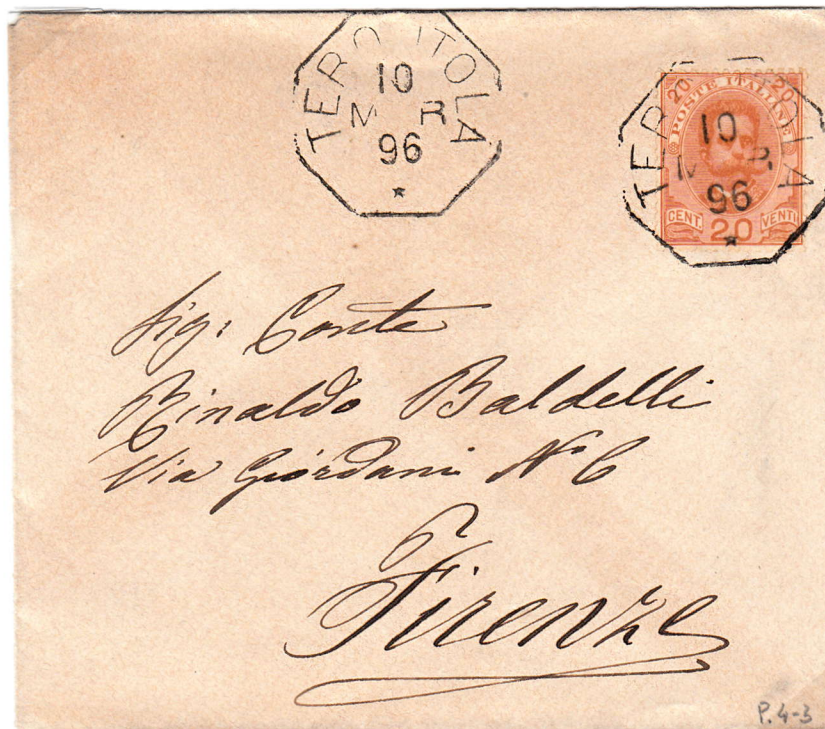 TERO ITOLA
10
M R
96
TER OLA
10
M R
96
20 20
POSTE ITALIANE
CENT. VENTI
20
Sig: Conte
Rinaldo Baldelli
Via Giordani N° 6
Firenze
P. 4-3